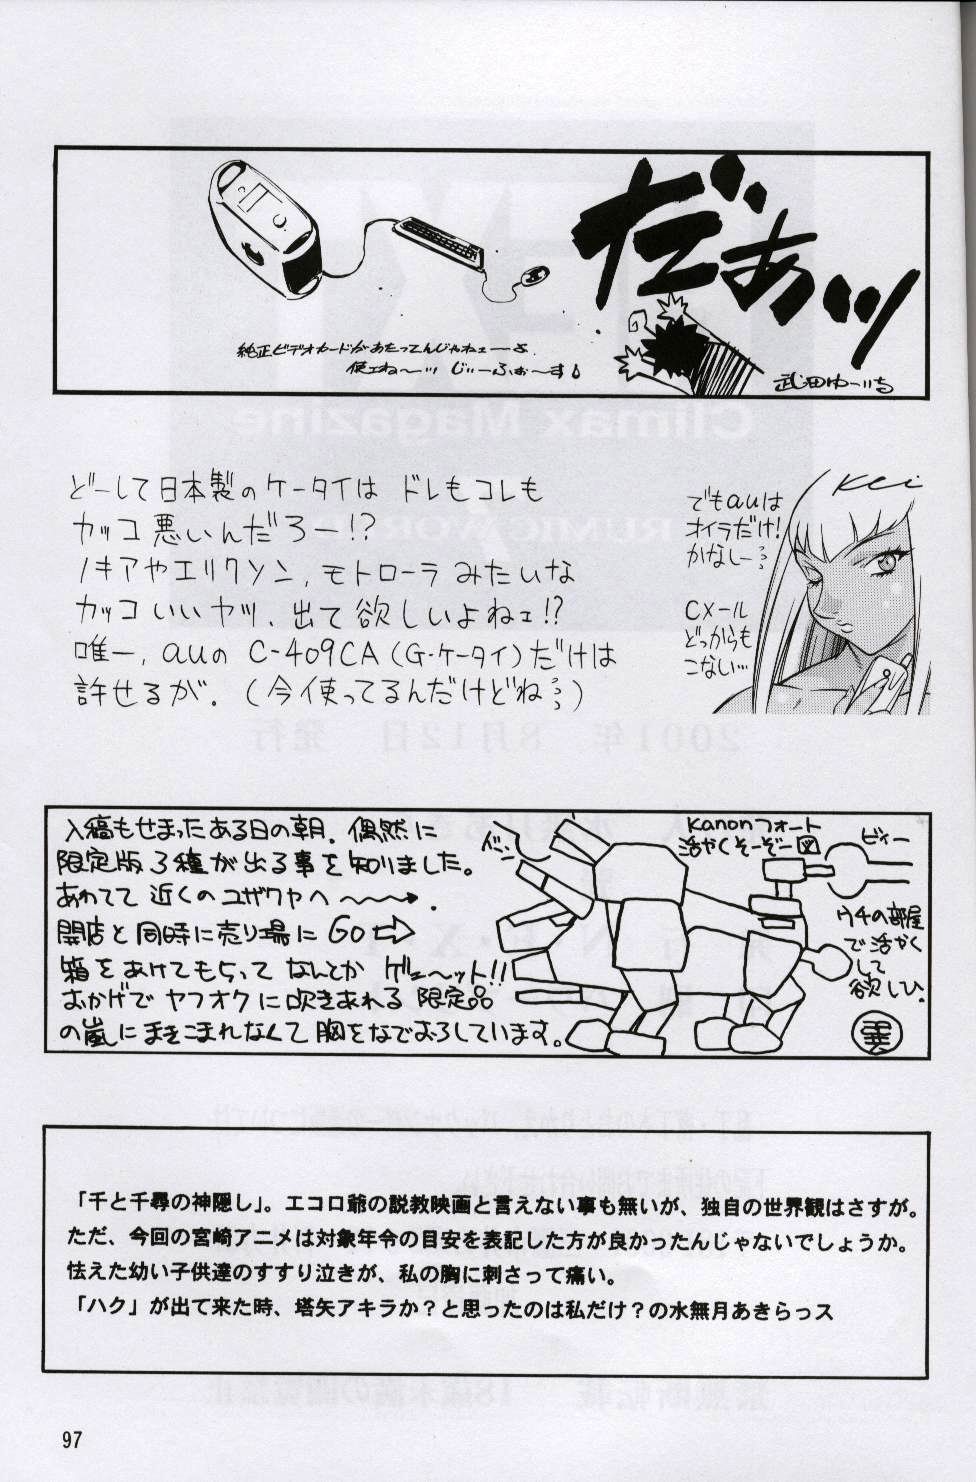 だぁッ
純正ビデオカードがあたってんじゃねェーよ.
使エね〜ッ じぃーふぉーす
武田ゆーいち
どーして日本製のケータイは ドレもコレも
カッコ悪いんだろー!?
ノキアやエリクソン, モトローラ みたいな
カッコ いいヤツ、出て欲しいよねェ!?
唯一, auの C-409CA (G・ケータイ)だけは
許せるが. (今使ってるんだけどね…)
Kei
でもauは
オイラだけ!
かなしー…
Cメール
どっからも
こない…
入稿もせまったある日の朝. 偶然に
限定版3種が出る事を知りました。
あわてて 近くの ユザワヤへ 〜〜→.
開店と同時に売り場に GO⇨
箱をあけてもらって なんとか ゲェ〜ット!!
おかげで ヤフオクに吹きあれる 限定品
の嵐にまきこまれなくて 胸をなでおろしています。
Kanonフォート
活やくそーぞー図
ビィー
ウチの部屋
で活やく
して
欲しひ.
「千と千尋の神隠し」。エコロ爺の説教映画と言えない事も無いが、独自の世界観はさすが。
ただ、今回の宮崎アニメは対象年令の目安を表記した方が良かったんじゃないでしょうか。
怯えた幼い子供達のすすり泣きが、私の胸に刺さって痛い。
「ハク」が出て来た時、塔矢アキラか？と思ったのは私だけ？の水無月あきらっス
97